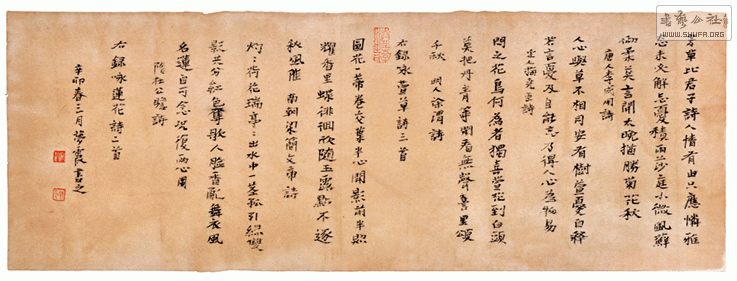 芳草比君子詩人情有由只應憐雅
態未必解忘憂積雨莎庭小微風蘚
砌幽莫言開太晚猶勝菊花秋
唐人李咸用詩
人心與草不相同安有樹萱憂自釋
若言憂及此能忘乃得人心為物易
宋人梅堯臣詩
問之花鳥何為者獨喜萱花到白頭
莫把丹青等閒看無聲詩里頌
千秋 明人徐渭詩
右錄詠萱草詩三首
圓花一蒂卷交葉半心開影前光照
耀香里蝶徘徊欣隨玉露點不逐
秋風催 南朝梁簡文帝詩
灼灼荷花瑞亭亭出水中一莖孤引綠雙
影共分紅色奪歌人臉香亂舞衣風
名蓮自可念況復兩心同
隋杜公瞻詩
右錄詠蓮花詩二首
辛卯春三月夢霞書之
書藝公社
WWW.SHUFA.ORG